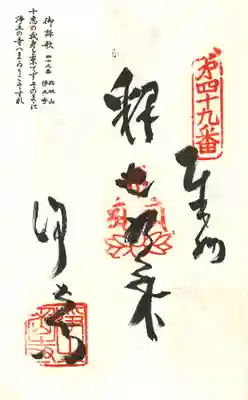 第四十九番
奉納
釈迦如来
浄土寺
御詠歌
四十九番 西林山 浄土寺
十悪の我身を棄てずそのままに
浄土の寺へまゐりこそすれ